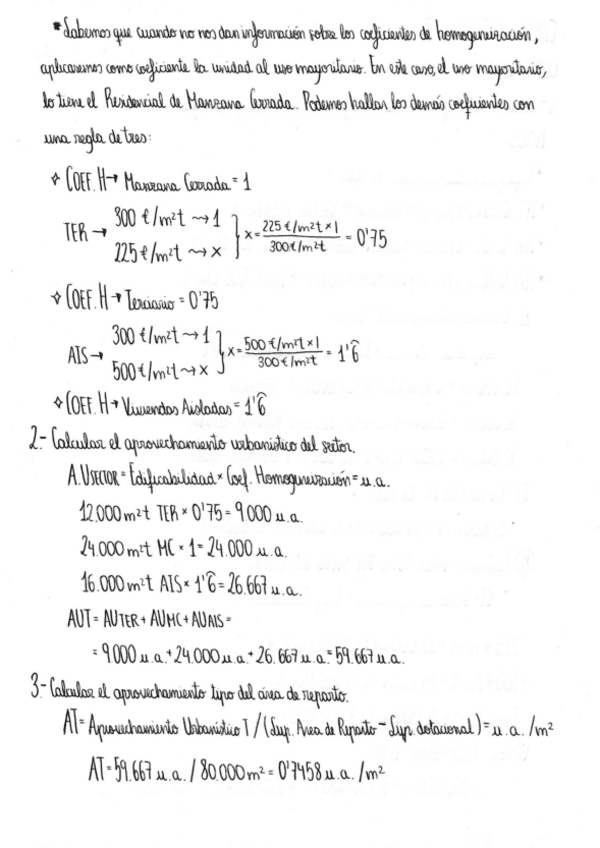 *Sabemos que cuando no nos dan información sobre los coeficientes de homogeneización,
aplicaremos como coeficiente la unidad al uso mayoritario. En este caso, el uso mayoritario,
lo tiene el Residencial de Manzana Cerrada. Podemos hallar los demás coeficientes con
una regla de tres:
✧ COEF. H → Manzana Cerrada = 1
TER → 300 €/m²t → 1
225 €/m²t → x } x = 225 €/m²t × 1 / 300 €/m²t = 0'75
✧ COEF. H → Terciario = 0'75
AIS → 300 €/m²t → 1
500 €/m²t → x } x = 500 €/m²t × 1 / 300 €/m²t = 1'6̂
✧ COEF. H → Viviendas Aisladas = 1'6̂
2.- Calcular el aprovechamiento urbanístico del sector.
A.U SECTOR = Edificabilidad × Coef. Homogeneización = u.a.
12.000 m²t TER × 0'75 = 9000 u.a.
24.000 m²t MC × 1 = 24.000 u.a.
16.000 m²t AIS × 1'6̂ = 26.667 u.a.
AUT = AUTER + AUMC + AUAIS =
= 9.000 u.a. + 24.000 u.a. + 26.667 u.a. = 59.667 u.a.
3.- Calcular el aprovechamiento tipo del área de reparto.
AT = Aprovechamiento Urbanístico T / (Sup. Area de Reparto - Sup. dotacional) = u.a. /m²
AT = 59.667 u.a. / 80.000 m² = 0'7458 u.a. /m²